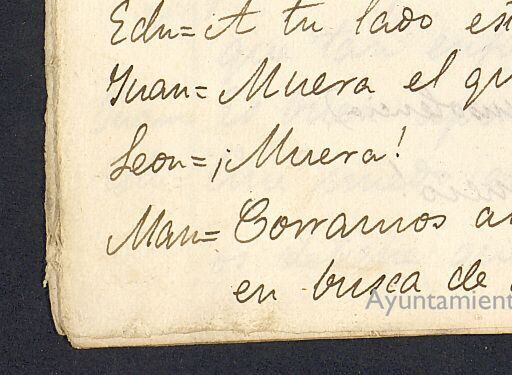 Edu= A tu lado est
Juan= Muera el qu
Leon= ¡Muera!
Man= Corramos a
en busca de
Ayuntamient